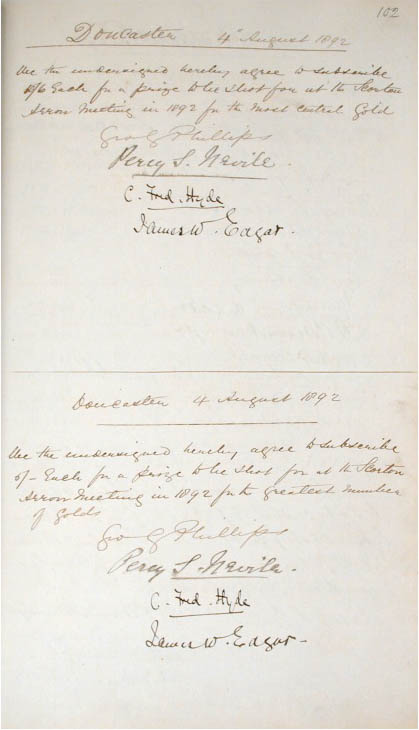 102
Doncaster 4 August 1892
We the undersigned hereby agree to subscribe
Each for a prize to be shot for at the Scorton
Arrow Meeting in 1892 for the most central Gold
Geo G Phillips
Percy S. Nevile.
C. Fred. Hyde
James W. Edgar.
Doncaster 4 August 1892
We the undersigned hereby agree to subscribe
Each for a prize to be shot for at the Scorton
Arrow Meeting in 1892 for the greatest number
of Golds
Geo G Phillips
Percy S. Nevile.
C. Fred. Hyde
James W. Edgar.